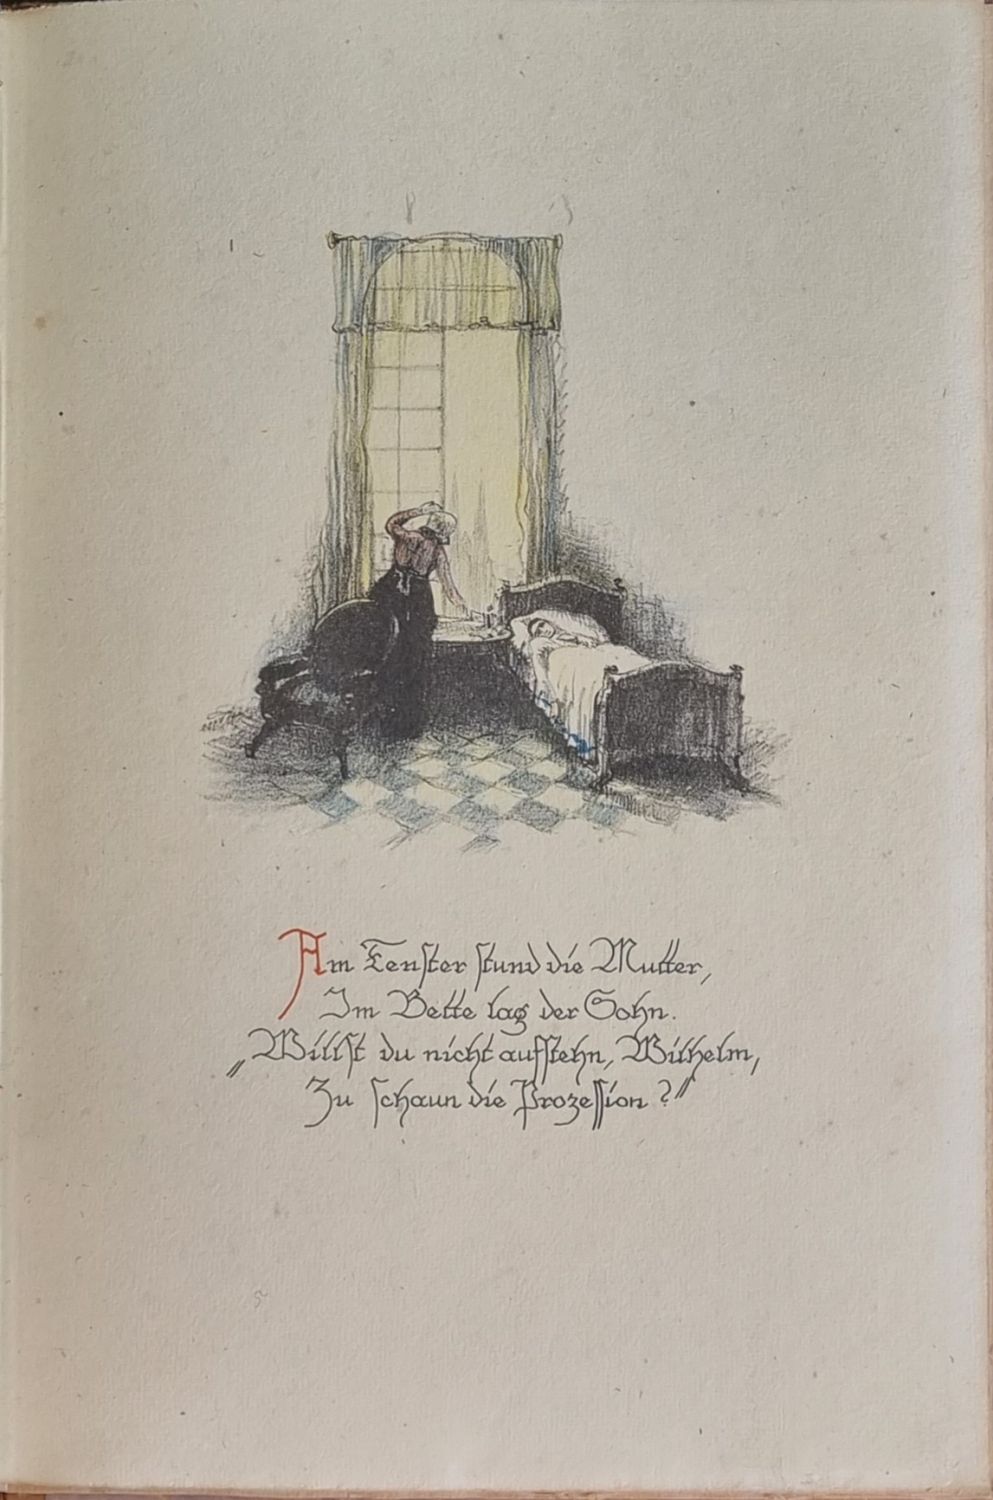 Am Fenster stund die Mutter,
Im Bette lag der Sohn.
„Willst du nicht aufstehn, Wilhelm,
Zu schaun die Prozession?“